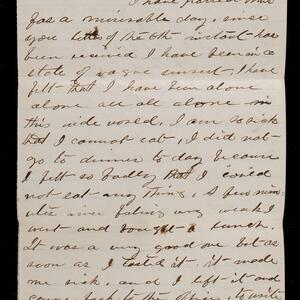 I have
has a miserable day, since
your letter of the 6th instant has
been received I have been in a
state of vague unrest, I have
felt that I have been alone
alone all all alone in
this wide world. I am so sick
that I cannot eat, I did not
go to dinner to day because
I felt so badly that I could
not eat any thing, A few min-
utes since feeling very weak I
went and bought a lunch.
It was a very good one but as
soon as I tasted it, it made
me sick, and I left it and
came back to the office to write